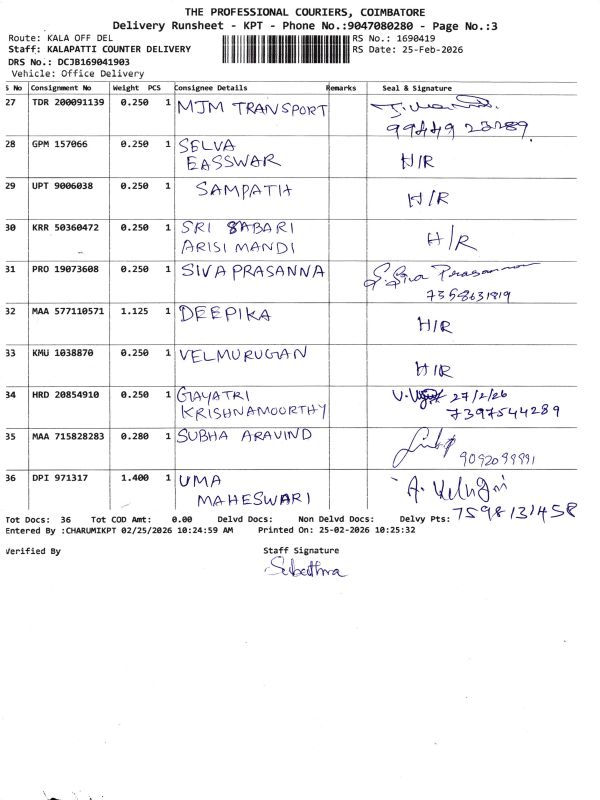 THE PROFESSIONAL COURIERS, COIMBATORE
Delivery Runsheet - KPT - Phone No.:9047080280 - Page No.:3
Route: KALA OFF DEL
RS No.: 1690419
Staff: KALAPATTI COUNTER DELIVERY
RS Date: 25-Feb-2026
DRS No.: DCJB169041903
Vehicle: Office Delivery
S No Consignment No Weight PCS Consignee Details Remarks Seal & Signature
27 TDR 200091139 0.250 1 MJM TRANSPORT
99449 23289
28 GPM 157066 0.250 1 SELVA
EASSWAR H/R
29 UPT 9006038 0.250 1 SAMPATH H/R
30 KRR 50360472 0.250 1 SRI SABARI
ARISI MANDI H/R
31 PRO 19073608 0.250 1 SIVA PRASANNA S. Siva Prasanna
7358631819
32 MAA 577110571 1.125 1 DEEPIKA H/R
33 KMU 1038870 0.250 1 VELMURUGAN H/R
34 HRD 20854910 0.250 1 GAYATRI 27/2/26
KRISHNAMOORTHY 7397544289
35 MAA 715828283 0.280 1 SUBHA ARAVIND
9092099991
36 DPI 971317 1.400 1 UMA
MAHESWARI
7598131458
Tot Docs: 36 Tot COD Amt: 0.00 Delvd Docs: Non Delvd Docs: Delvy Pts:
Entered By :CHARUMIKPT 02/25/2026 10:24:59 AM Printed On: 25-02-2026 10:25:32
Verified By Staff Signature
Subathra